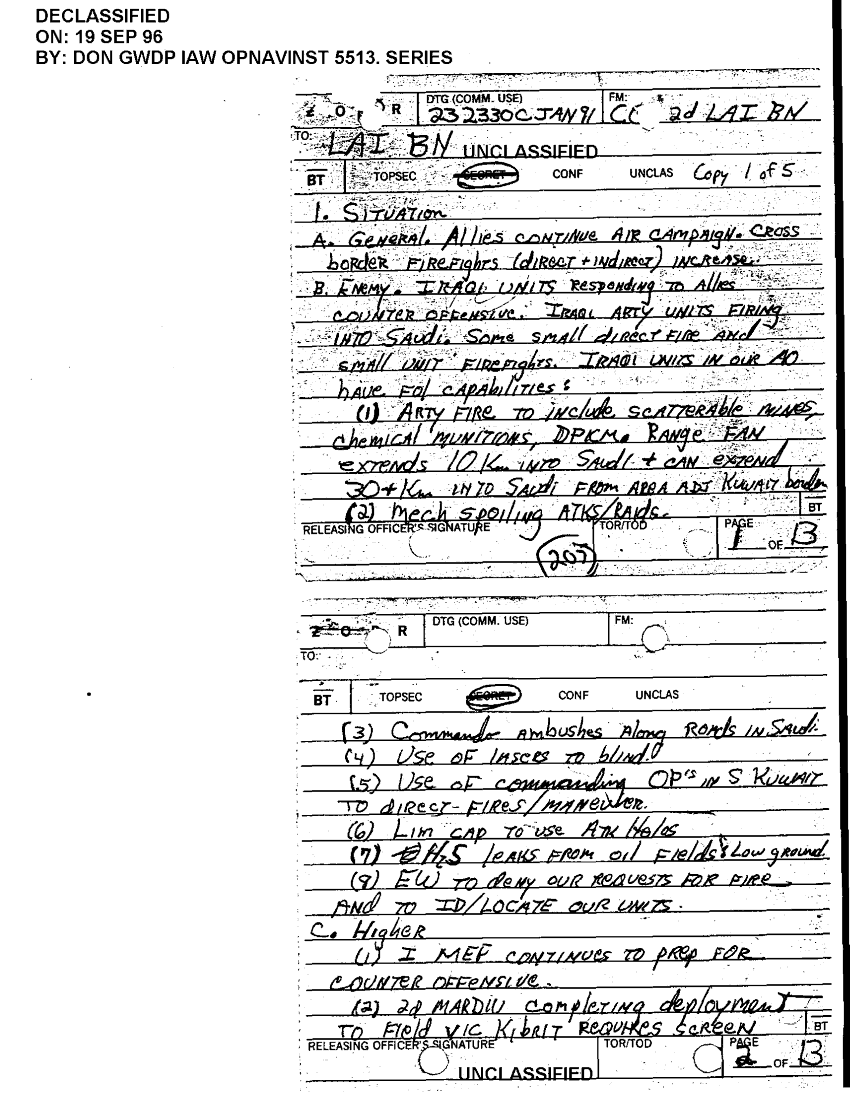 DECLASSIFIED
ON: 19 SEP 96
BY: DON GWDP IAW OPNAVINST 5513. SERIES
Z O R DTG (COMM. USE) FM:
232330C JAN 91 CC 2d LAI BN
TO: LAI BN UNCLASSIFIED
BT TOPSEC SECRET CONF UNCLAS Copy 1 of 5
1. SITUATION
A. GENERAL. Allies CONTINUE AIR CAMPAIGN. CROSS
border FIREFIGHTS (diRECT + INdiRECT) INCREASE.
B. ENEMY. IRAQI UNITS RESPONDING TO Allies
COUNTER OFFENSIVE. IRAQI ARTY UNITS FIRING
INTO SAUdi. SOME SMALL diRECT FIRE ANd
SMALL UNIT FIREFIGHTS. IRAQI UNITS IN OUR AO
hAVE FOl CAPABILITIES:
(1) ARTY FIRE TO INClude SCATTERABLE MINES,
ChEMICAL MUNITIONS, DPICM. RANGE FAN
EXTENDS 10 Km INTO SAUdi + CAN EXTENd
30+ Km INTO SAUdi FROM AREA ADJ KUWAIT border
(2) MECH SPOILING ATKS/RAIDS. BT
RELEASING OFFICER'S SIGNATURE TOR/TOD PAGE
1 OF 13
203
Z O R DTG (COMM. USE) FM:
TO:
BT TOPSEC SECRET CONF UNCLAS
(3) COMMANDO AMBUSHES Along ROADS IN SAUdi.
(4) USE OF lASERS TO blINd.
(5) USE OF COMMANding OP'S IN S KUWAIT
TO diRECT FIRES/MANEUVER.
(6) LIM CAP TO USE ATK HElOS
(7) H2S lEAKS FROM Oil FIElds & Low ground.
(8) EW TO dENY OUR REQUESTS FOR FIRE
ANd TO ID/LOCATE OUR UNITS.
C. HIGHER
(1) I MEF CONTINUES TO PREP FOR
COUNTER OFFENSIVE.
(2) 2d MARDIV COMPlETING dEplOYMENT
TO FIEld VIC KIBRIT REQUIRES SCREEN BT
RELEASING OFFICER'S SIGNATURE TOR/TOD PAGE
2 OF 13
UNCLASSIFIED